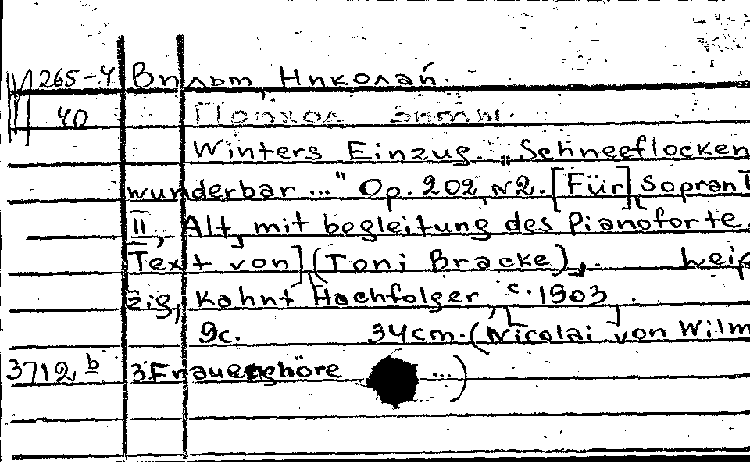 М 265-4 Вильм, Николай.
40 Приход зимы.
Winters Einzug. „Schneeflocken
wunderbar ..." Op. 202, N2. [Für] Sopran I
II, Alt, mit begleitung des Pianoforte.
Text von] (Toni Bracke), . Leip
zig, Kahnt Nachfolger, c. 1903.
9c. 34cm. (Nicolai von Wilm
3712 b 3 Frauenchöre ...)